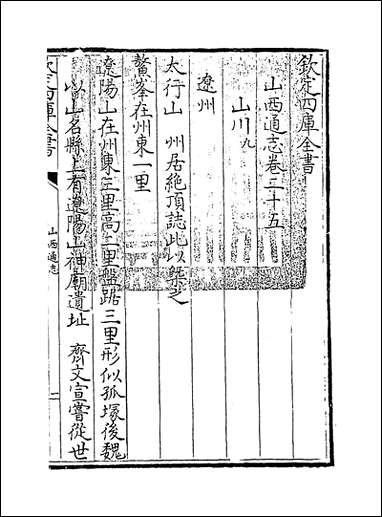 欽定四庫全書
山西通志卷二十五
山川九
遼州
太行山 州居絶頂誌此以槩之
鰲峯在州東一里
遼陽山在州東三里高二里盤踞三里形似孤塚後魏
以山名縣上有遼陽山神廟遺址 齊文宣嘗從世
欽定四庫全書
山西通志